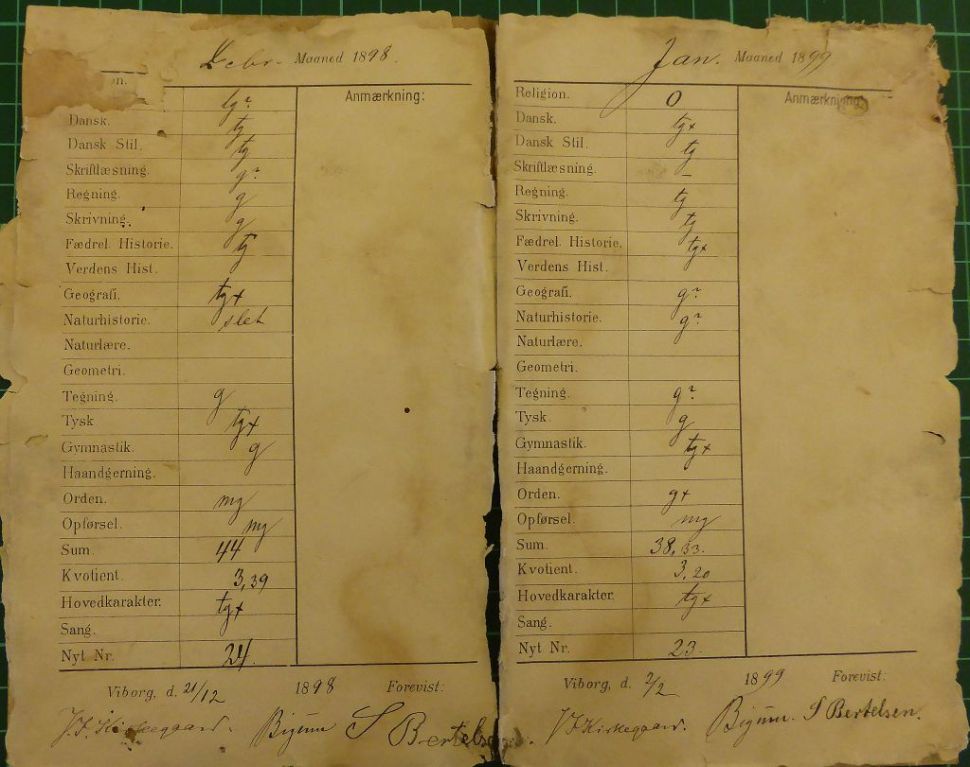 Debr. Maaned 1898.
n.
Anmærkning:
tg?
Dansk. tg
Dansk Stil. tg
Skriftlæsning. g?
Regning. g
Skrivning. g
Fædrel. Historie. tg
Verdens Hist.
Geografi. tg+
Naturhistorie. slet
Naturlære.
Geometri.
Tegning. g
Tysk tg+
Gymnastik. g
Haandgerning.
Orden. mg
Opførsel. mg
Sum. 44
Kvotient. 3,39
Hovedkarakter. tg+
Sang.
Nyt Nr. 24.
Viborg, d. 21/12 1898 Forevist:
J. F. Kirkegaard. Bigum S Bertelsen.
Jan. Maaned 1899
Anmærkning:
Religion. 0
Dansk. tg+
Dansk Stil. tg
Skriftlæsning. –
Regning. tg
Skrivning. tg
Fædrel. Historie. tg+
Verdens Hist.
Geografi. g?
Naturhistorie. g?
Naturlære.
Geometri.
Tegning. g?
Tysk. g
Gymnastik. tg+
Haandgerning.
Orden. g+
Opførsel. mg
Sum. 38,33.
Kvotient. 3,20
Hovedkarakter. tg+
Sang.
Nyt Nr. 23.
Viborg, d. 2/2 1899 Forevist:
J F Kirkegaard. Bigum. S Bertelsen.